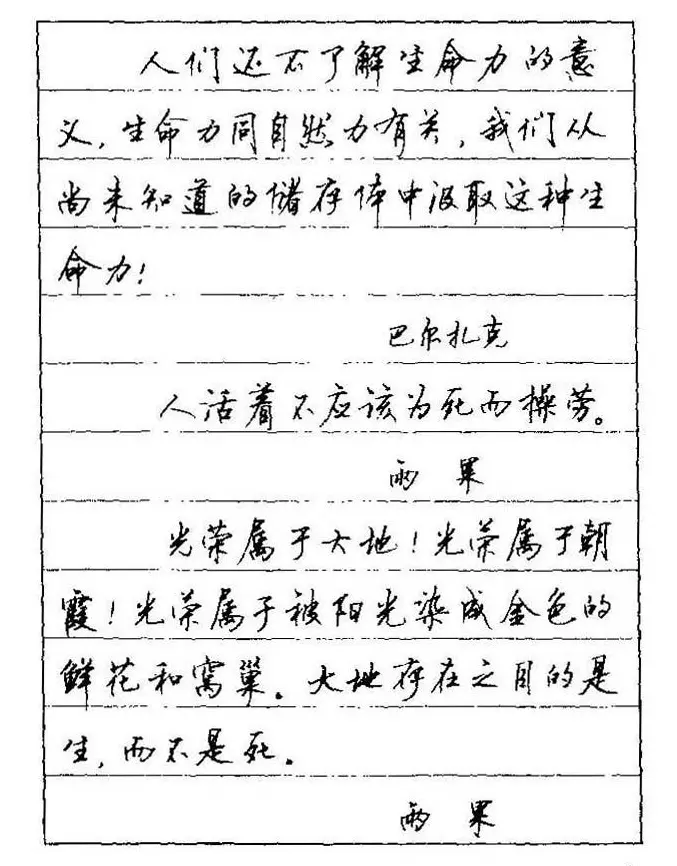 人们还不了解生命力的意
义,生命力同自然力有关,我们从
尚未知道的储存体中汲取这种生
命力!
巴尔扎克
人活着不应该为死而操劳。
雨果
光荣属于大地!光荣属于朝
霞!光荣属于被阳光染成金色的
鲜花和窝巢。大地存在之目的是
生,而不是死。
雨果